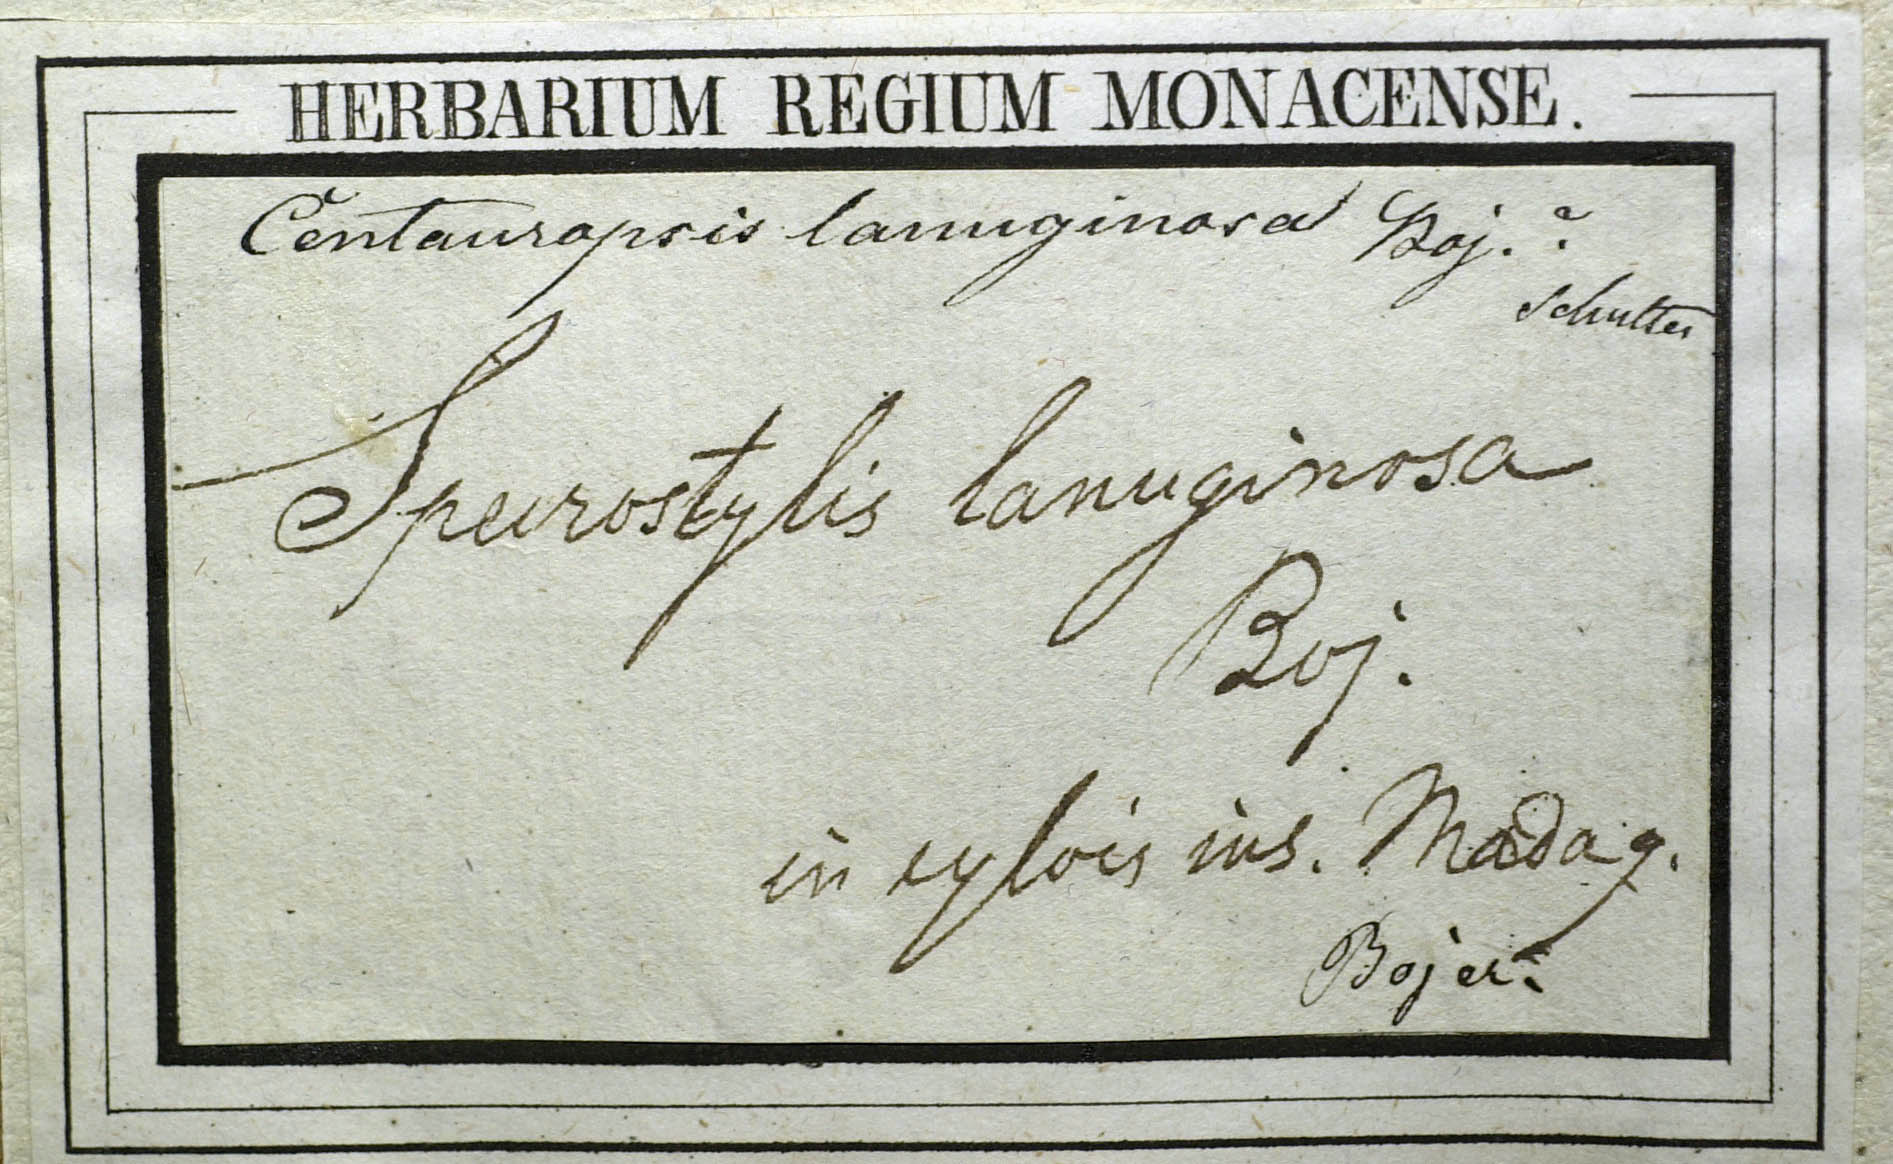 HERBARIUM REGIUM MONACENSE.
Centauropsis lanuginosa Boj.?
Schultes
Speirostylis lanuginosa
Boj.
in sylvis ins. Madag.
Bojer.